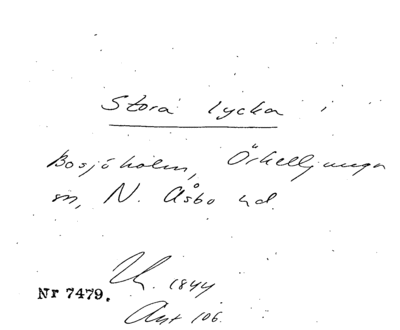 Stora lycka i
Bosjöholm, Örkelljunga
sn, N. Åsbo hd.
Lh. 1844
Nr 7479.
Akt 106.